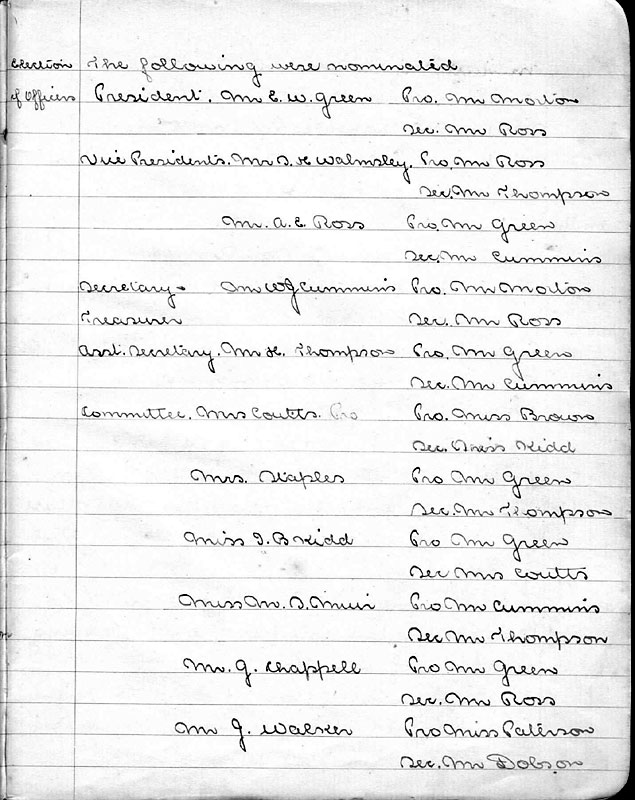 Election The following were nominated
of Officers President. Mr E. W. Green Pro. Mr Morton
Sec. Mr Ross
Vice Presidents. Mr S. H Walmsley. Pro. Mr Ross
Sec. Mr Thompson
Mr. A. E. Ross Pro. Mr Green
Sec. Mr Cummins
Secretary- Mr W J Cummins Pro. Mr Morton
Treasurer Sec. Mr Ross
Asst. Secretary. Mr H. Thompson Pro. Mr Green
Sec. Mr Cummins
Committee. Mrs Coutts. Pro Pro. Miss Brown
Sec. Miss Kidd
Mrs. Staples Pro Mr Green
Sec. Mr Thompson
Miss I. B Kidd Pro Mr Green
Sec Mrs Coutts
Miss M. S. Muir Pro Mr Cummins
Sec Mr Thompson
Mr. G. Chappell Pro Mr Green
Sec. Mr Ross
Mr J. Walker Pro Miss Paterson
Sec. Mr Dobson